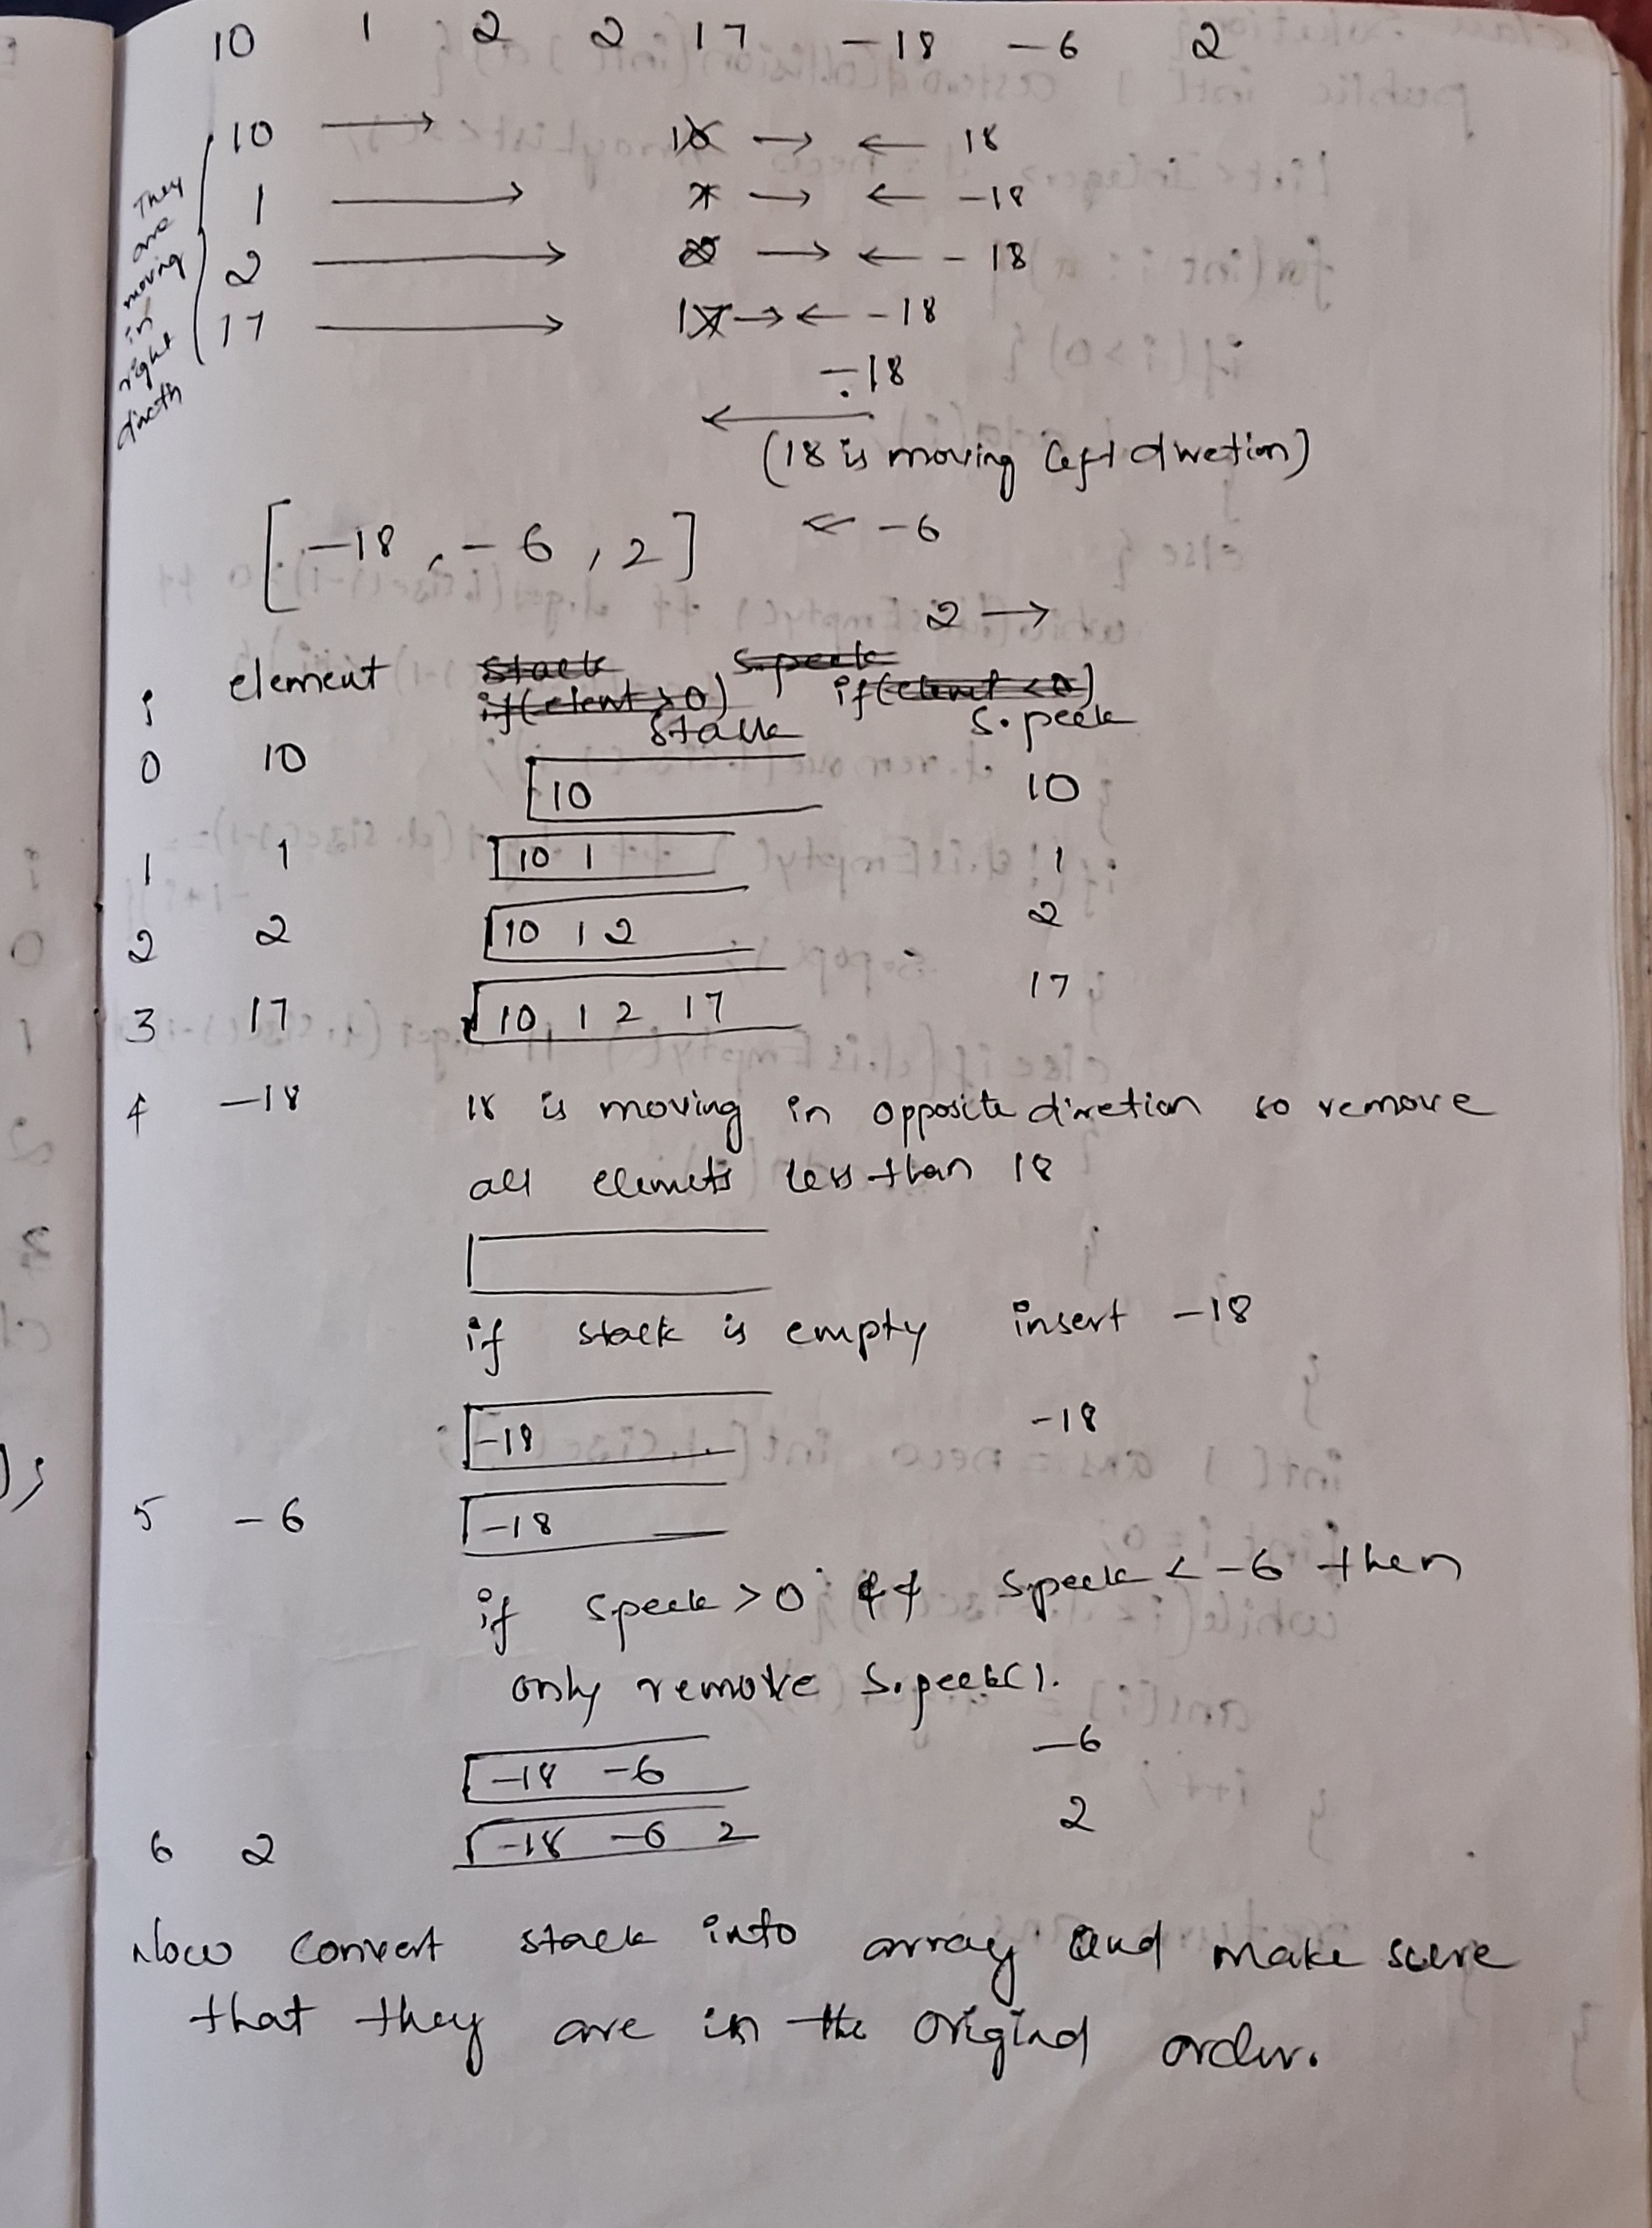 10 1 2 2 17 -18 -6 2
They are moving in right dircth
10 → 10 → ← 18
1 → 1 → ← -18
2 → 2 → ← -18
17 → 17 → ← -18
-18
←
(18 is moving left direction)
[-18, -6, 2] ← -6
2 →
i element stack s.peek
if(elemt > 0) if(elemet < 0)
stack s.peek
0 10 10 10
1 1 10 1 1
2 2 10 1 2 2
3 17 10, 1 2 17 17
4 -18 18 is moving in opposite diretion so remove
all elemets less than 18
if stack is empty insert -18
-18 -18
5 -6 -18
if speek > 0 && speek < -6 then
only remove s.peek().
-18 -6 -6
6 2 -18 -6 2 2
Now convert stack into array and make sure
that they are in the original order.